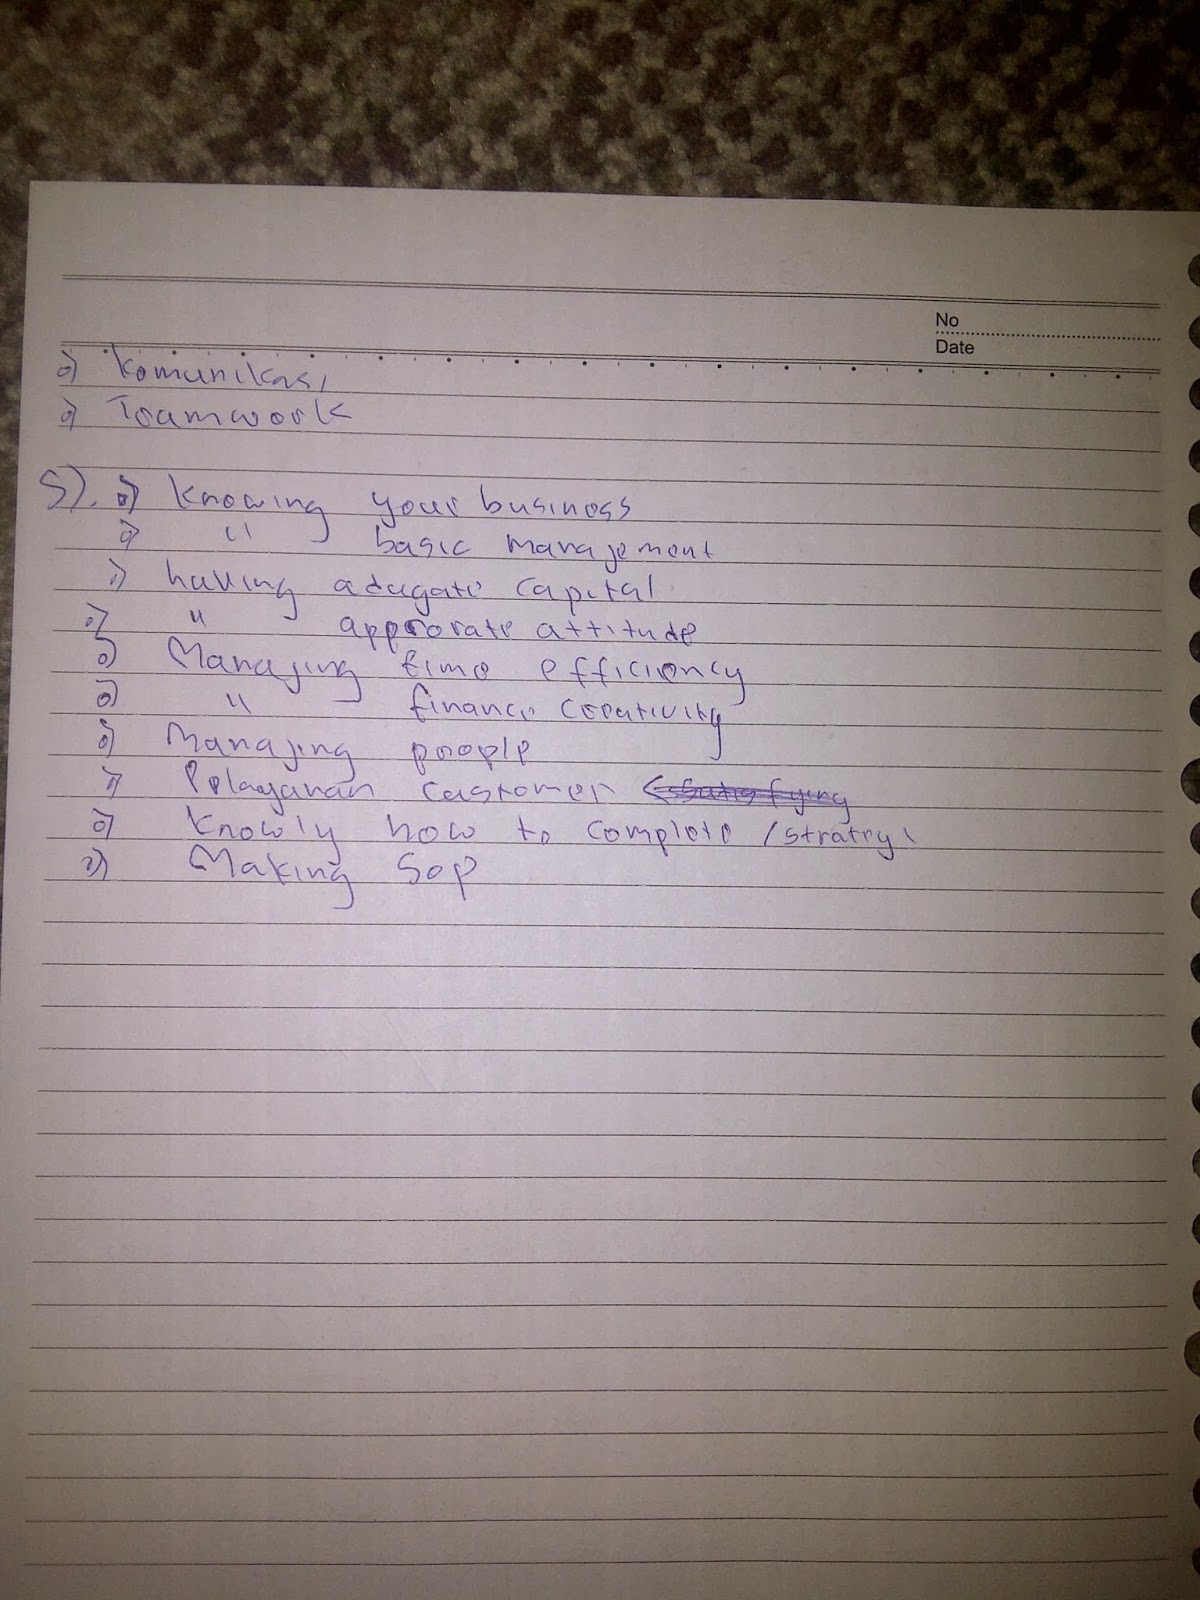 No
Date
o) Komunikasi
o) Teamwork
5). o) Knowing your business
o) " basic management
o) having adugate capital
o) " approrate attitude
o) Managing time efficiency
o) " finance creativity
o) Managing people
o) Pelayanan customer satisfying
o) Knowly how to complete / stratry
o) Making Sop